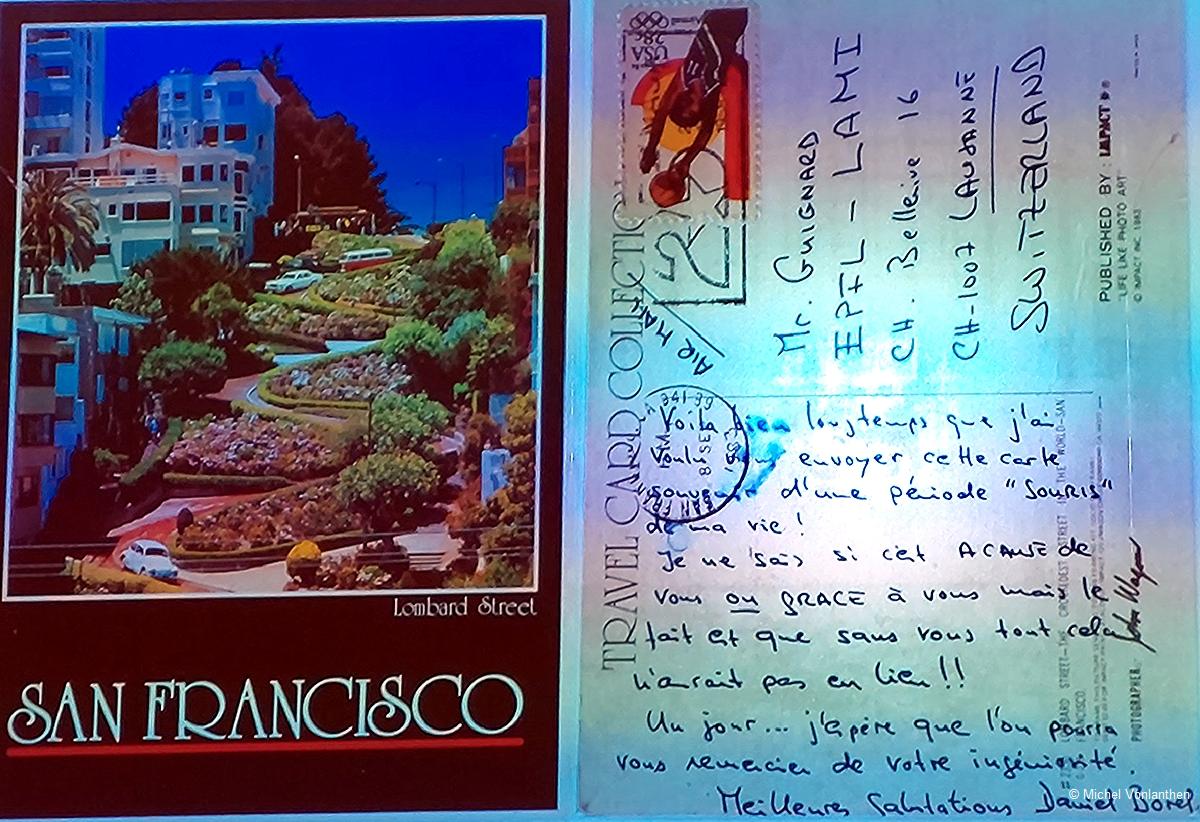 Lombard Street
SAN FRANCISCO
USA
28c
TRAVEL CARD COLLECTION
AIR MAIL
Mr. GUIGNARD
EPFL - LAMI
CH. Bellerive 16
CH-1007 LAUSANNE
SWITZERLAND
PUBLISHED BY: IMPACT
"LIFE LIKE PHOTO ART"
© IMPACT INC. 1983
PHOTOGRAPHER:
8 SE
Voila bien longtemps que j'ai
voulu vous envoyer cette carte
souvenir d'une période "SOURIS"
de ma vie !
Je ne sais si c'est A CAUSE de
vous ou GRACE à vous mais le
fait est que sans vous tout cela
n'aurait pas eu lieu !!
Un jour... j'espère que l'on pourra
vous remercier de votre ingéniosité.
Meilleures Salutations Daniel Borel
© Michel Vonlanthen